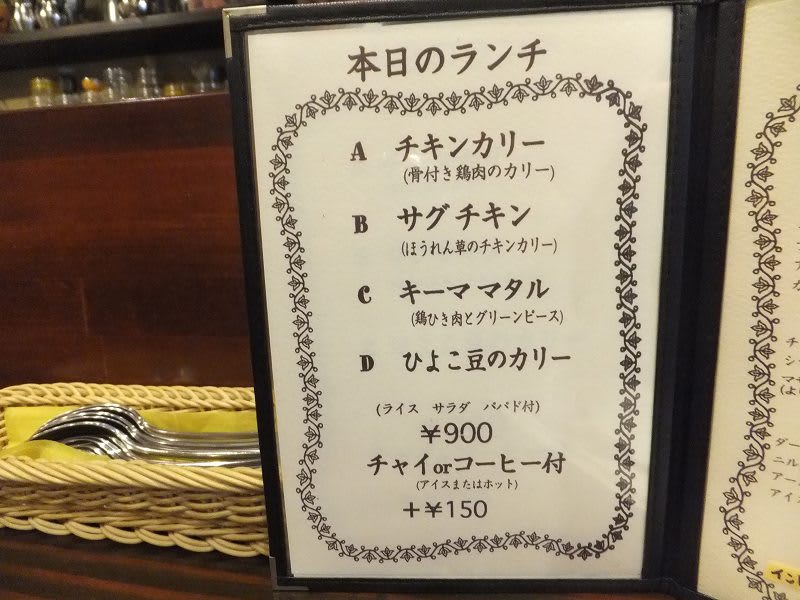 本日のランチ
A チキンカリー
(骨付き鶏肉のカリー)
B サグ チキン
(ほうれん草のチキンカリー)
C キーマ マタル
(鶏ひき肉とグリーンピース)
D ひよこ豆のカリー
(ライス サラダ パパド付)
¥900
チャイorコーヒー付
(アイスまたはホット)
+¥150
チ
シ
マ
(よ
ダー
ニル
アー
アイ
イン